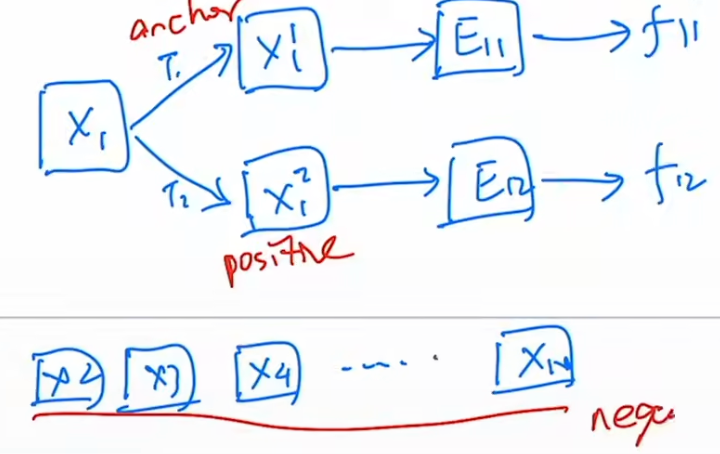 anchor
T₁ X₁¹ E₁₁ f₁₁
X₁
T₂ X₁² E₁₂ f₁₂
positive
X₂ X₃ X₄ ..... X_N
nega